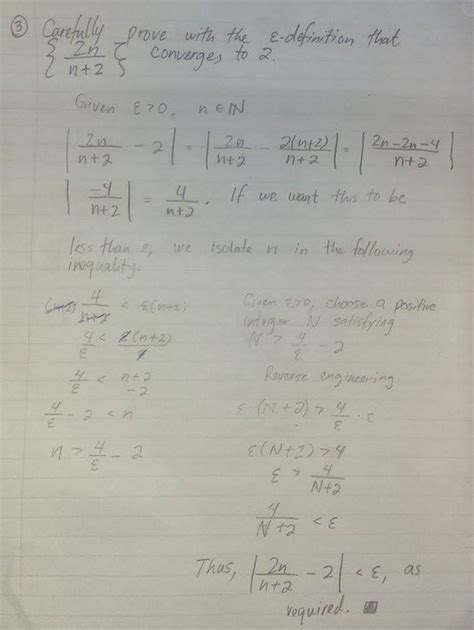 ③ Carefully prove with the ε-definition that
{ 2n/(n+2) } converges to 2.
Given ε>0, n ∈ ℕ
| 2n/(n+2) - 2 | = | 2n/(n+2) - 2(n+2)/(n+2) | = | (2n-2n-4)/(n+2) |
| -4/(n+2) | = 4/(n+2) . If we want this to be
less than ε, we isolate n in the following
inequality:
4/(n+2) < ε(n+2)
4/ε < ε(n+2)/ε
4/ε < n+2
-2
4/ε - 2 < n
n > 4/ε - 2
Given ε>0, choose a positive
integer N satisfying
N > 4/ε - 2
Reverse engineering
ε (N+2) > 4/ε · ε
ε(N+2) > 4
ε > 4/(N+2)
4/(N+2) < ε
Thus, | 2n/(n+2) - 2 | < ε, as
required. ■